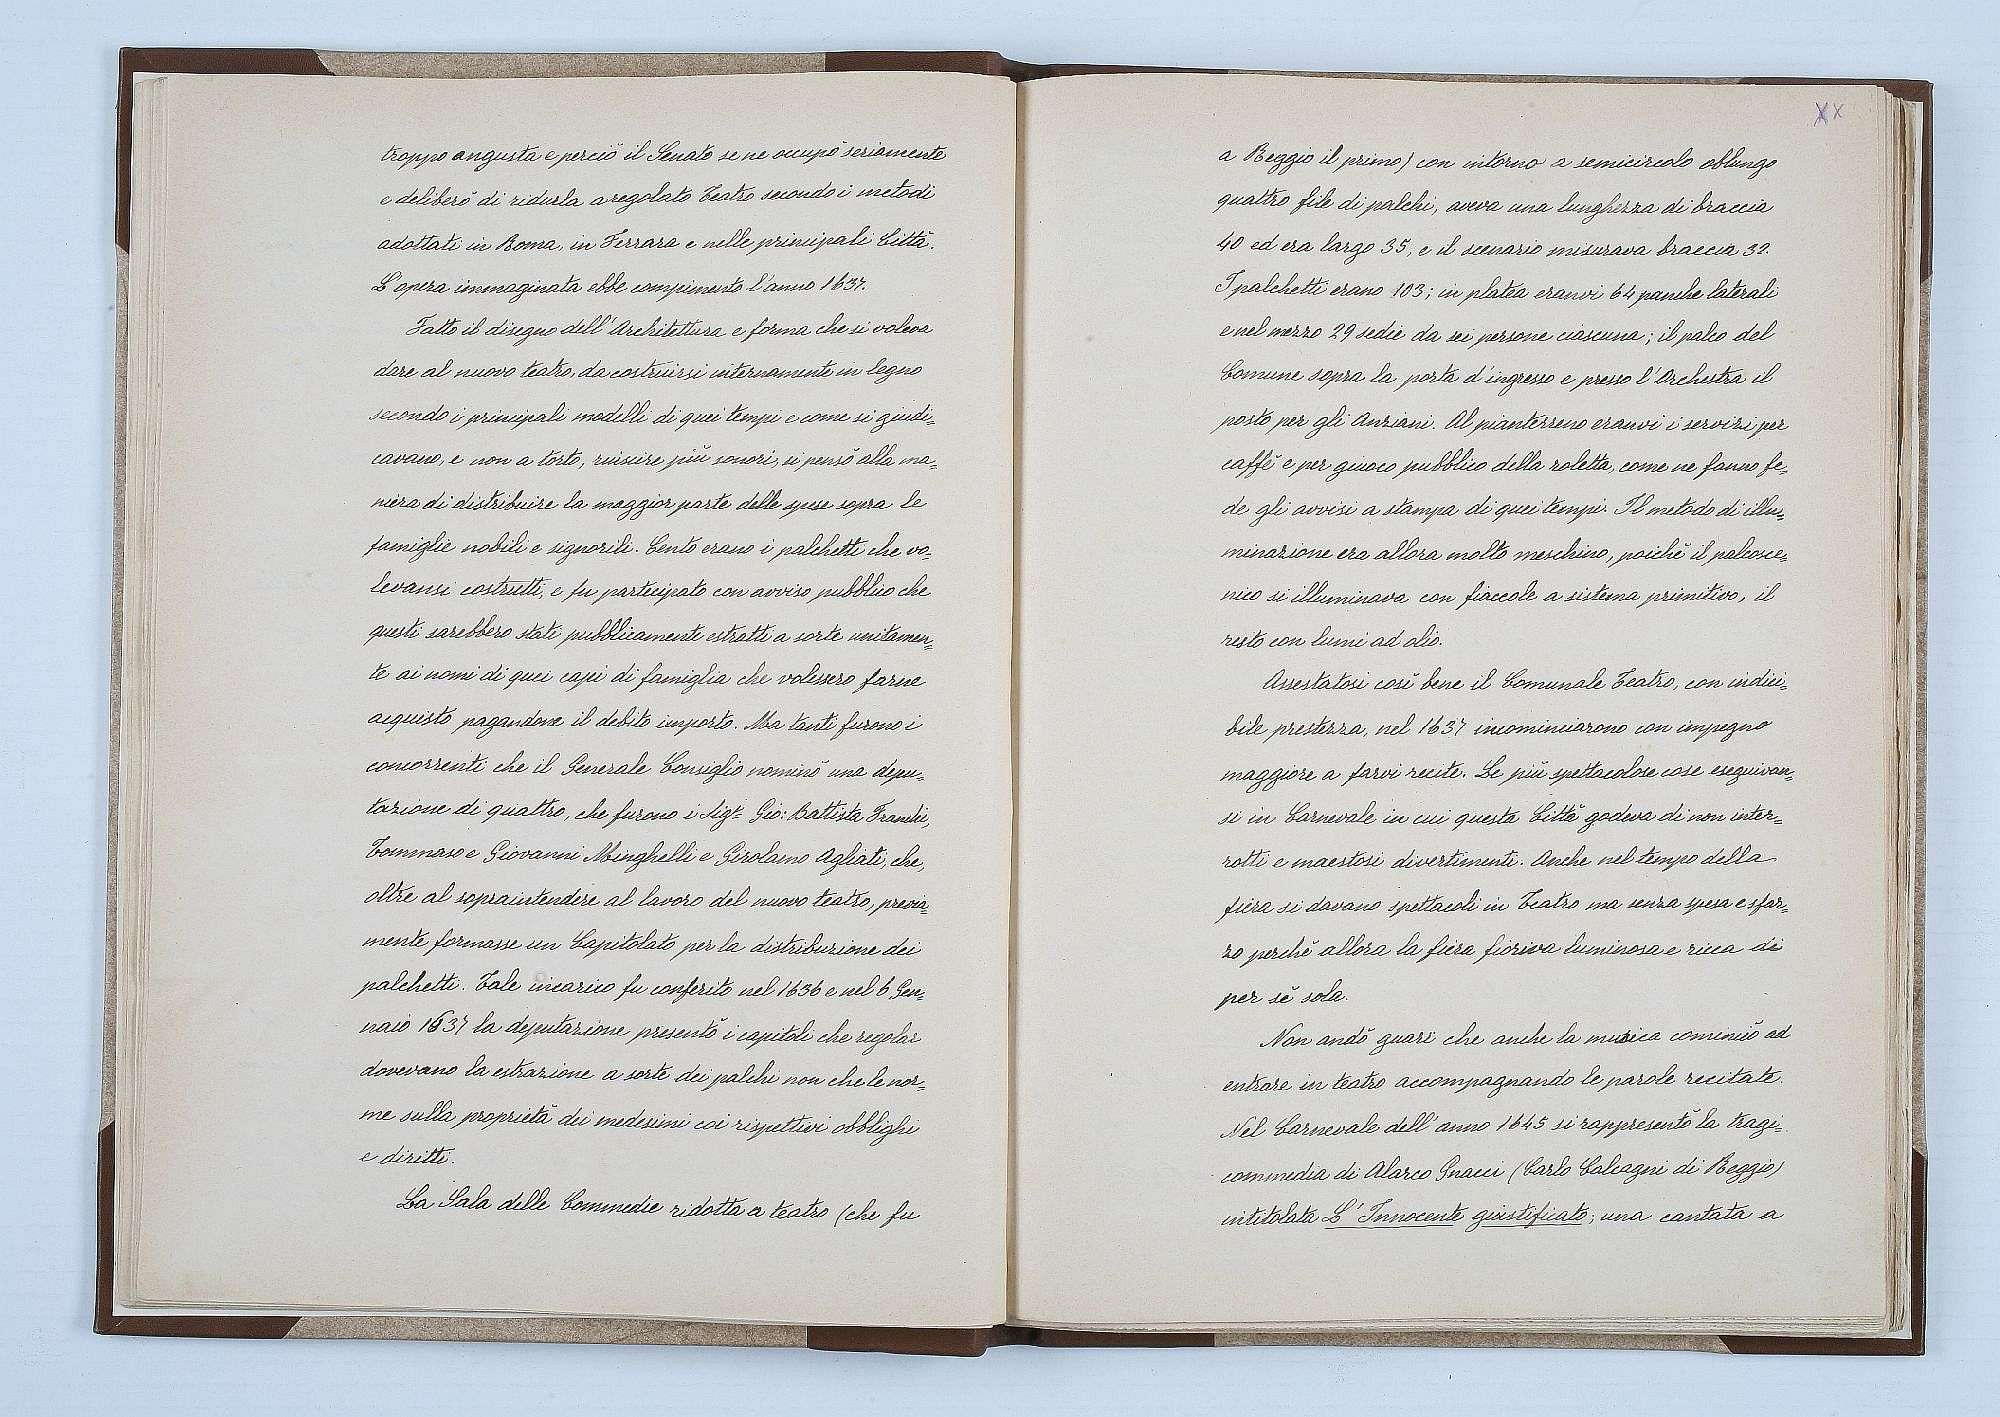 troppo angusta e perciò il Senato se ne occupò seriamente
e deliberò di ridurla a regolato Teatro secondo i metodi
adottati in Roma, in Ferrara e nelle principali Città.
L'opera immaginata ebbe compimento l'anno 1637.
Fatto il disegno dell'Architettura e forma che si voleva
dare al nuovo teatro, da costruirsi internamente in legno
secondo i principali modelli di quei tempi e come si giudi=
cavano, e non a torto, riuscire più sonori, si pensò alla ma=
niera di distribuire la maggior parte delle spese sopra le
famiglie nobili e signorili. Cento erano i palchetti che vo=
levansi costrutti, e fu participato con avviso pubblico che
questi sarebbero stati pubblicamente estratti a sorte unitamen=
te ai nomi di quei capi di famiglia che volessero farne
acquisto pagandone il debito importo. Ma tanti furono i
concorrenti che il Generale Consiglio nominò una depu=
tazione di quattro, che furono i Sigri Gio: Battista Franchi,
Tommaso e Giovanni Minghelli e Girolamo Agliati, che,
oltre al sopraintendere al lavoro del nuovo teatro, previa=
mente formasse un Capitolato per la distribuzione dei
palchetti. Tale incarico fu conferito nel 1636 e nel 6 Gen=
naio 1637 la deputazione presentò i capitoli che regolar
dovevano la estrazione a sorte dei palchi non che le nor=
me sulla proprietà dei medesimi coi rispettivi obblighi
e diritti.
La Sala delle Commedie ridotta a teatro (che fu
XX
a Reggio il primo) con intorno a semicircolo oblungo
quattro file di palchi, aveva una lunghezza di braccia
40 ed era largo 35, e il scenario misurava braccia 32.
I palchetti erano 103; in platea eranvi 64 panche laterali
e nel mezzo 29 sedie da sei persone ciascuna; il palco del
Comune sopra la porta d'ingresso e presso l'Orchestra il
posto per gli Anziani. Al pianterreno eranvi i servizi per
caffè e per giuoco pubblico della roletta, come ne fanno fe=
de gli avvisi a stampa di quei tempi. Il metodo di illu=
minazione era allora molto meschino, poichè il palcosce=
nico si illuminava con fiaccole a sistema primitivo, il
resto con lumi ad olio.
Assestatosi così bene il Comunale Teatro, con indici=
bile prestezza, nel 1637 incominciarono con impegno
maggiore a farvi recite. Le più spettacolose cose eseguivan=
si in Carnevale in cui questa Città godeva di non inter=
rotti e maestosi divertimenti. Anche nel tempo della
fiera si davano spettacoli in Teatro ma senza spesa e sfor=
zo perchè allora la fiera fioriva luminosa e ricca di
per sè sola.
Non andò guari che anche la musica cominciò ad
entrare in teatro accompagnando le parole recitate.
Nel Carnevale dell'anno 1645 si rappresentò la tragi=
commedia di Alarco Gnacci (Carlo Calcagni di Reggio)
intitolata L'Innocente giustificato; una cantata a